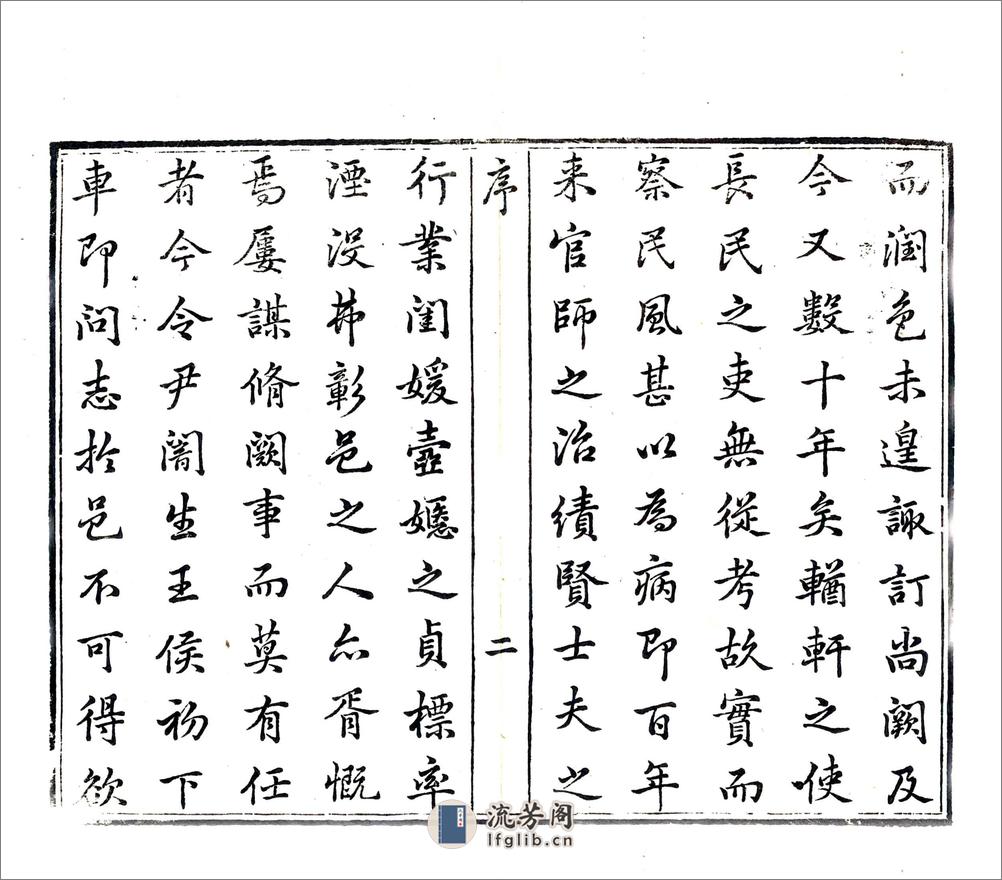 而潤色未遑諏訂尚闕及
今又數十年矣輶軒之使
長民之吏無從考故實而
察民風甚以為病即百年
来官師之治績賢士夫之
序
二
行業閨媛壼嬺之貞標率
湮沒弗彰邑之人亦胥慨
焉屢謀脩闕事而莫有任
者今令尹闇生王侯初下
車即問志於邑不可得欲
流芳阁
lfglib.cn